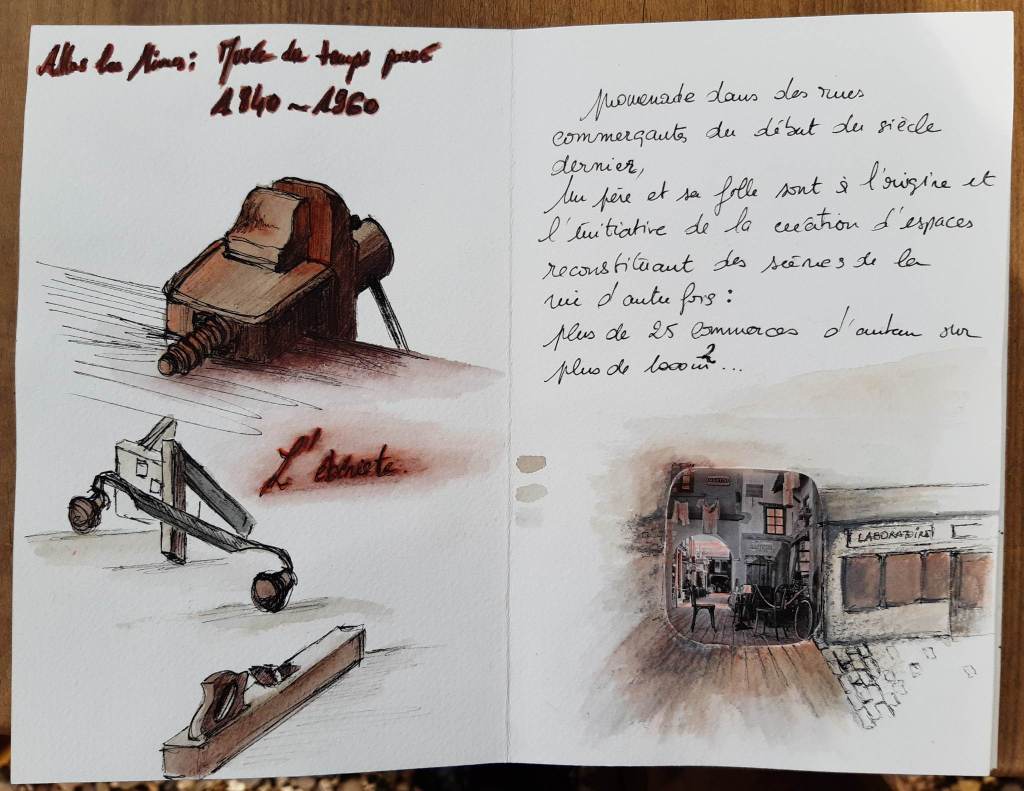 Allas les Mines: Musée du temps passé
1840 ~ 1960
L'ébéniste.
promenade dans des rues
commerçantes du début du siècle
dernier,
Un père et sa fille sont à l'origine et
l'initiative de la création d'espaces
reconstituant des scènes de la
vie d'autre fois :
plus de 25 commerces d'antan sur
plus de 1000m² ...
LABORATOIRE